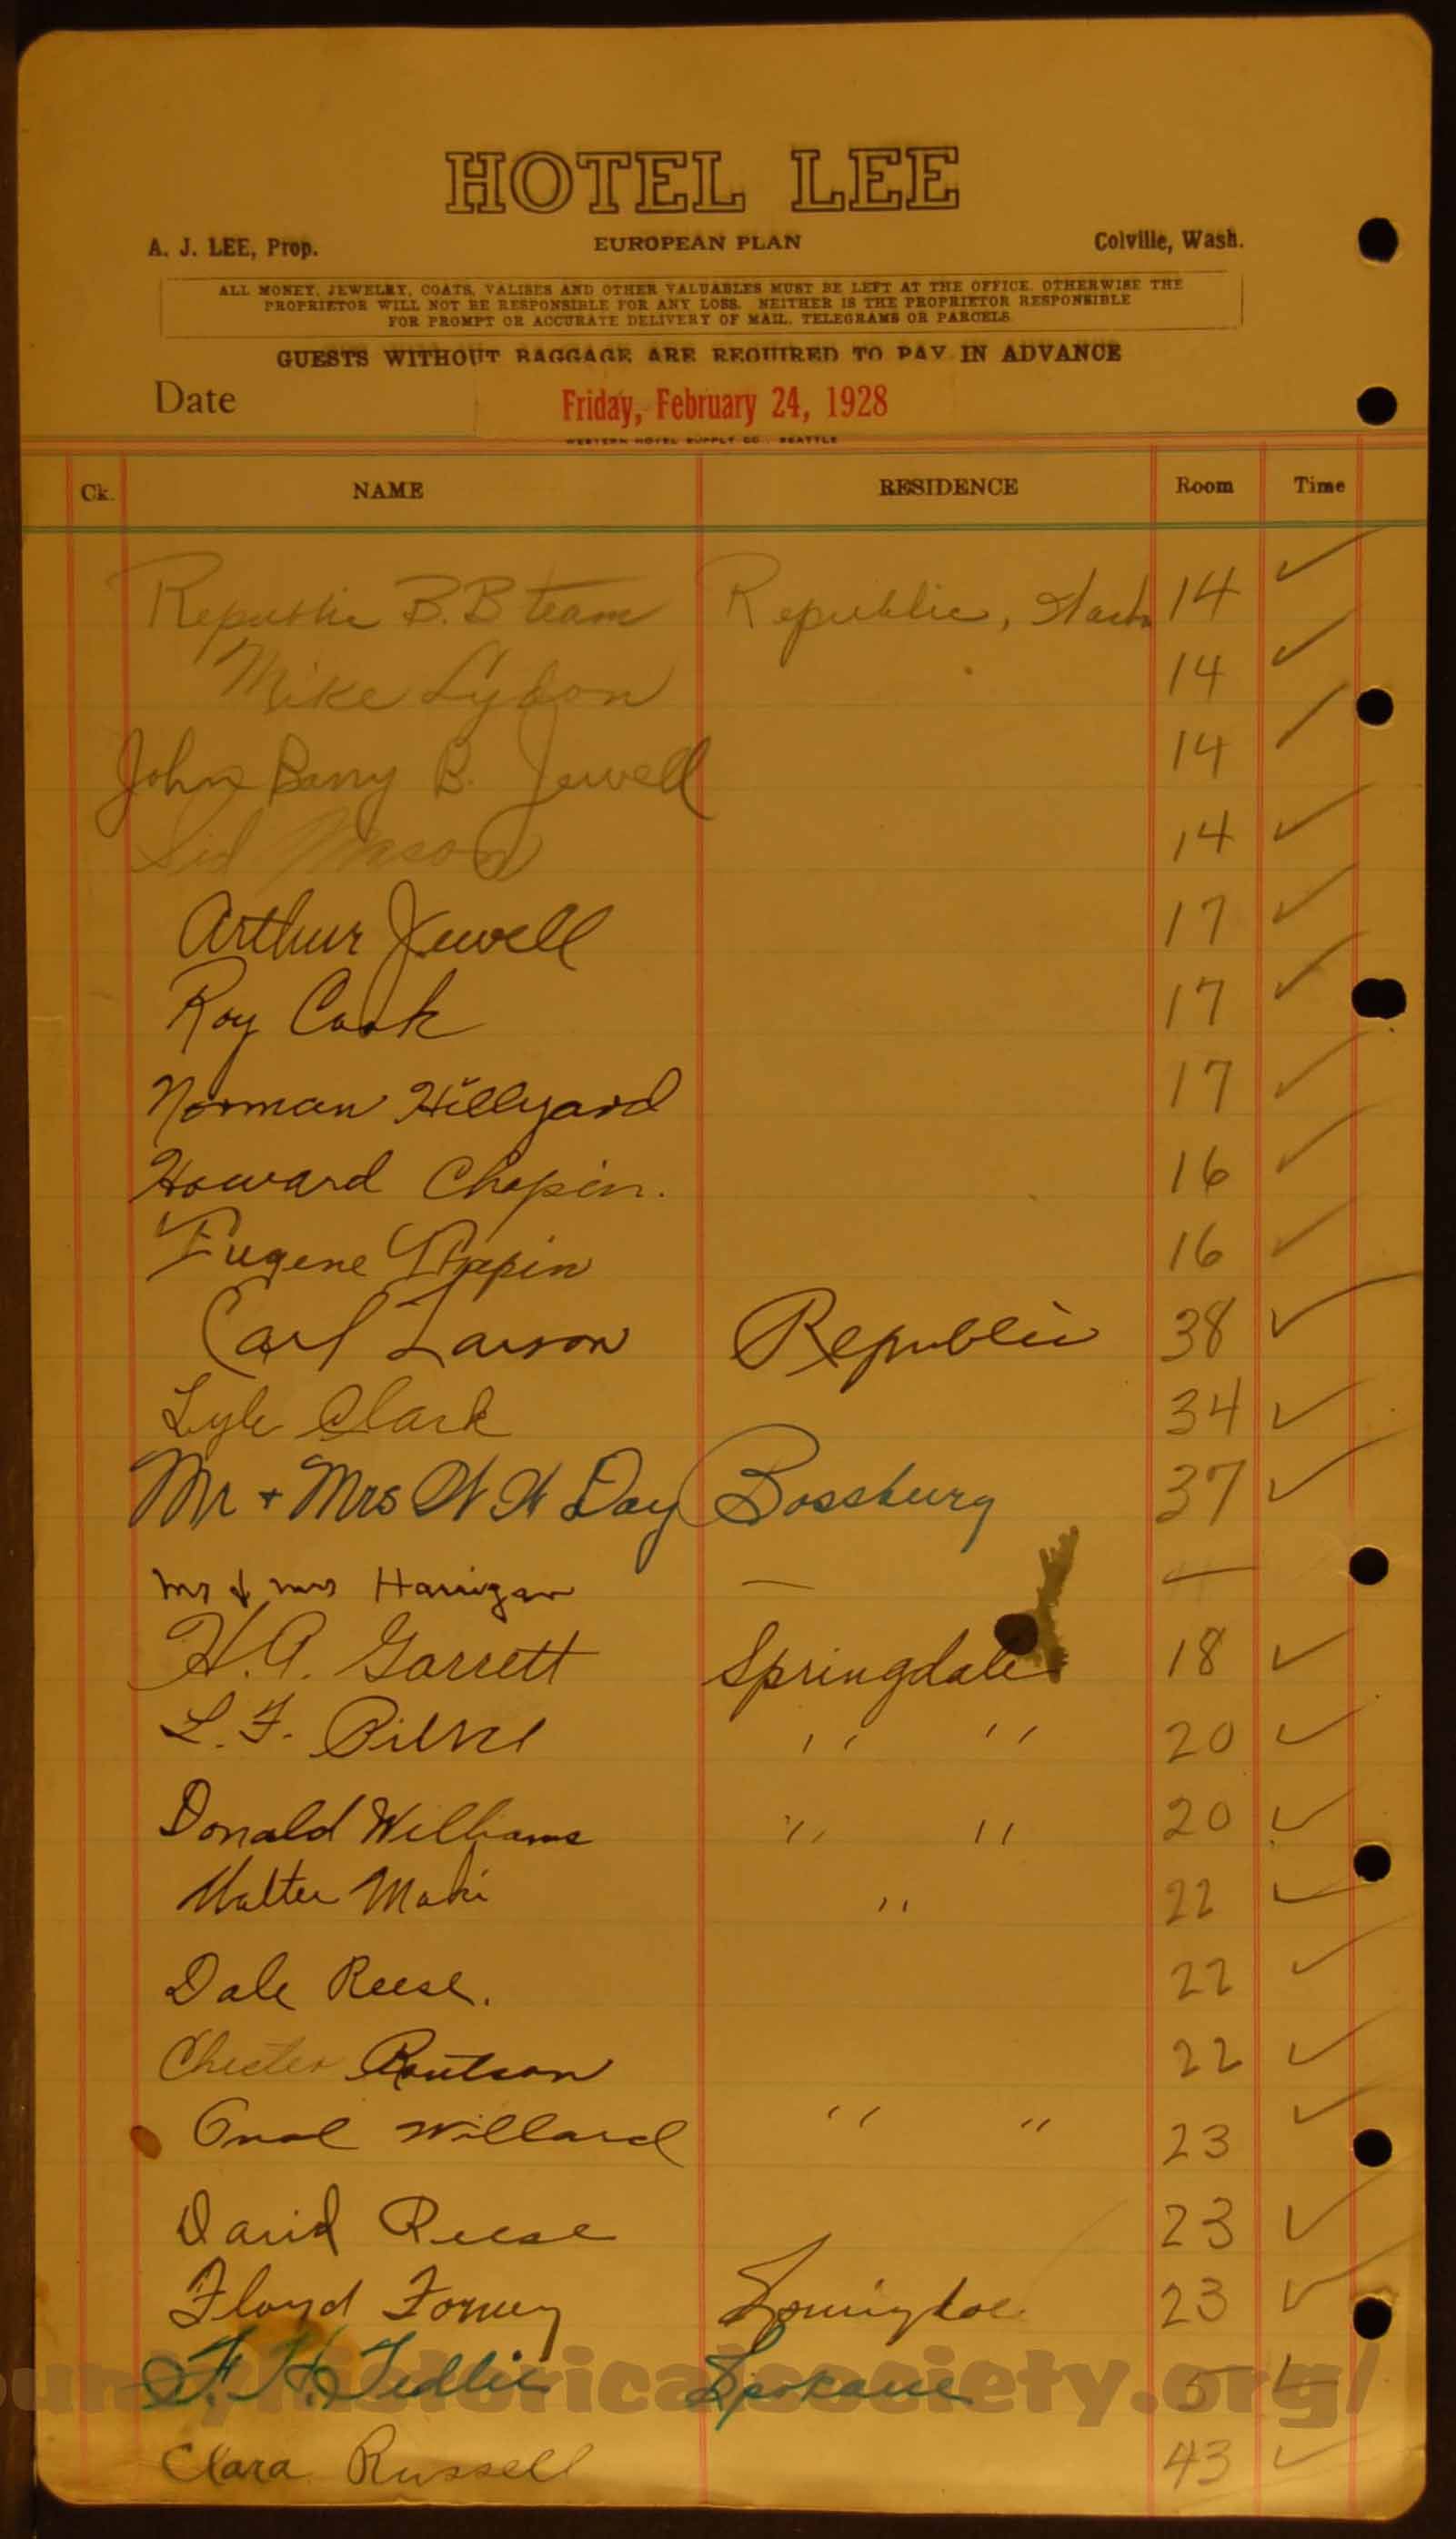 HOTEL LEE
A. J. LEE, Prop. EUROPEAN PLAN Colville, Wash.
ALL MONEY, JEWELRY, COATS, VALISES AND OTHER VALUABLES MUST BE LEFT AT THE OFFICE. OTHERWISE THE
PROPRIETOR WILL NOT BE RESPONSIBLE FOR ANY LOSS. NEITHER IS THE PROPRIETOR RESPONSIBLE
FOR PROMPT OR ACCURATE DELIVERY OF MAIL, TELEGRAMS OR PARCELS
GUESTS WITHOUT BAGGAGE ARE REQUIRED TO PAY IN ADVANCE
Date Friday, February 24, 1928
WESTERN HOTEL SUPPLY CO., SEATTLE
Ck. NAME RESIDENCE Room Time
Republic B.B team Republic, Wash 14 ✓
Mike 14 ✓
John Barry B. Jewell 14 ✓
Sid Mason 14 ✓
Arthur Jewell 17 ✓
Roy Cook 17 ✓
Norman Hillyard 17 ✓
Howard Chapin. 16 ✓
Eugene Chapin 16 ✓
Carl Larson Republic 38 ✓
Lyle Clark 34 ✓
Mr + Mrs Day Bossburg 37 ✓
Mr & Mrs Harrigan — —
H.A. Garrett Springdale 18 ✓
L.F. Pierce " " 20 ✓
Donald Williams " " 20 ✓
Walter Maki " 22 ✓
Dale Reese. 22 ✓
Chester 22 ✓
Willard " " 23 ✓
David Reese 23 ✓
Floyd Forney 23 ✓
F. H. Spokane 5 ✓
Clara Russell 43 ✓
historicalsociety.org/